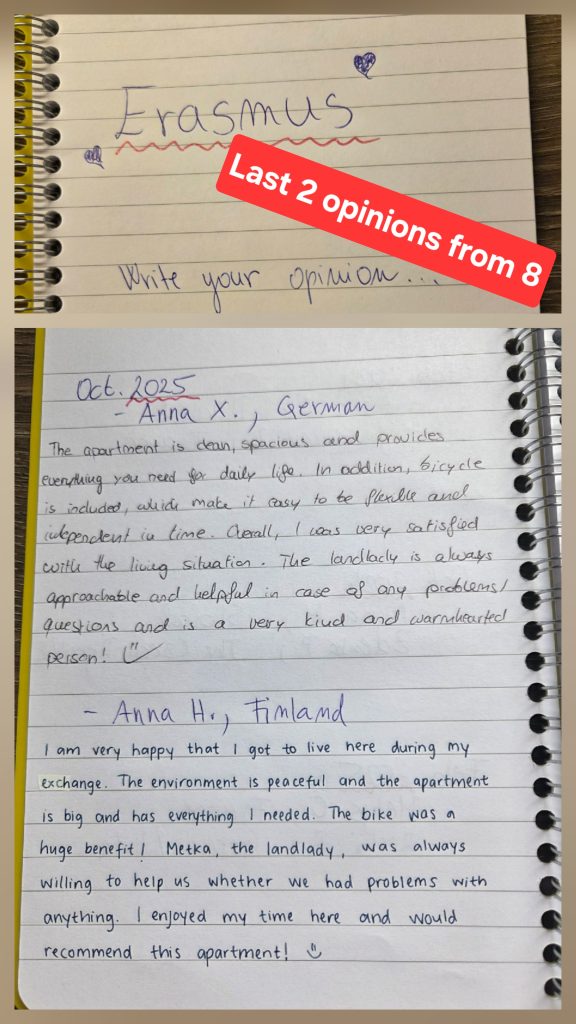 Erasmus
Last 2 opinions from 8
Write your opinion...
Oct. 2025
- Anna X., German
The apartment is clean, spacious and provides
everything you need for daily life. In addition, bicycle
is included, which make it easy to be flexible and
independent in time. Overall, I was very satisfied
with the living situation. The landlady is always
approachable and helpful in case of any problems/
questions and is a very kind and warmhearted
person!
- Anna H., Finland
I am very happy that I got to live here during my
exchange. The environment is peaceful and the apartment
is big and has everything I needed. The bike was a
huge benefit! Metka, the landlady, was always
willing to help us whether we had problems with
anything. I enjoyed my time here and would
recommend this apartment!